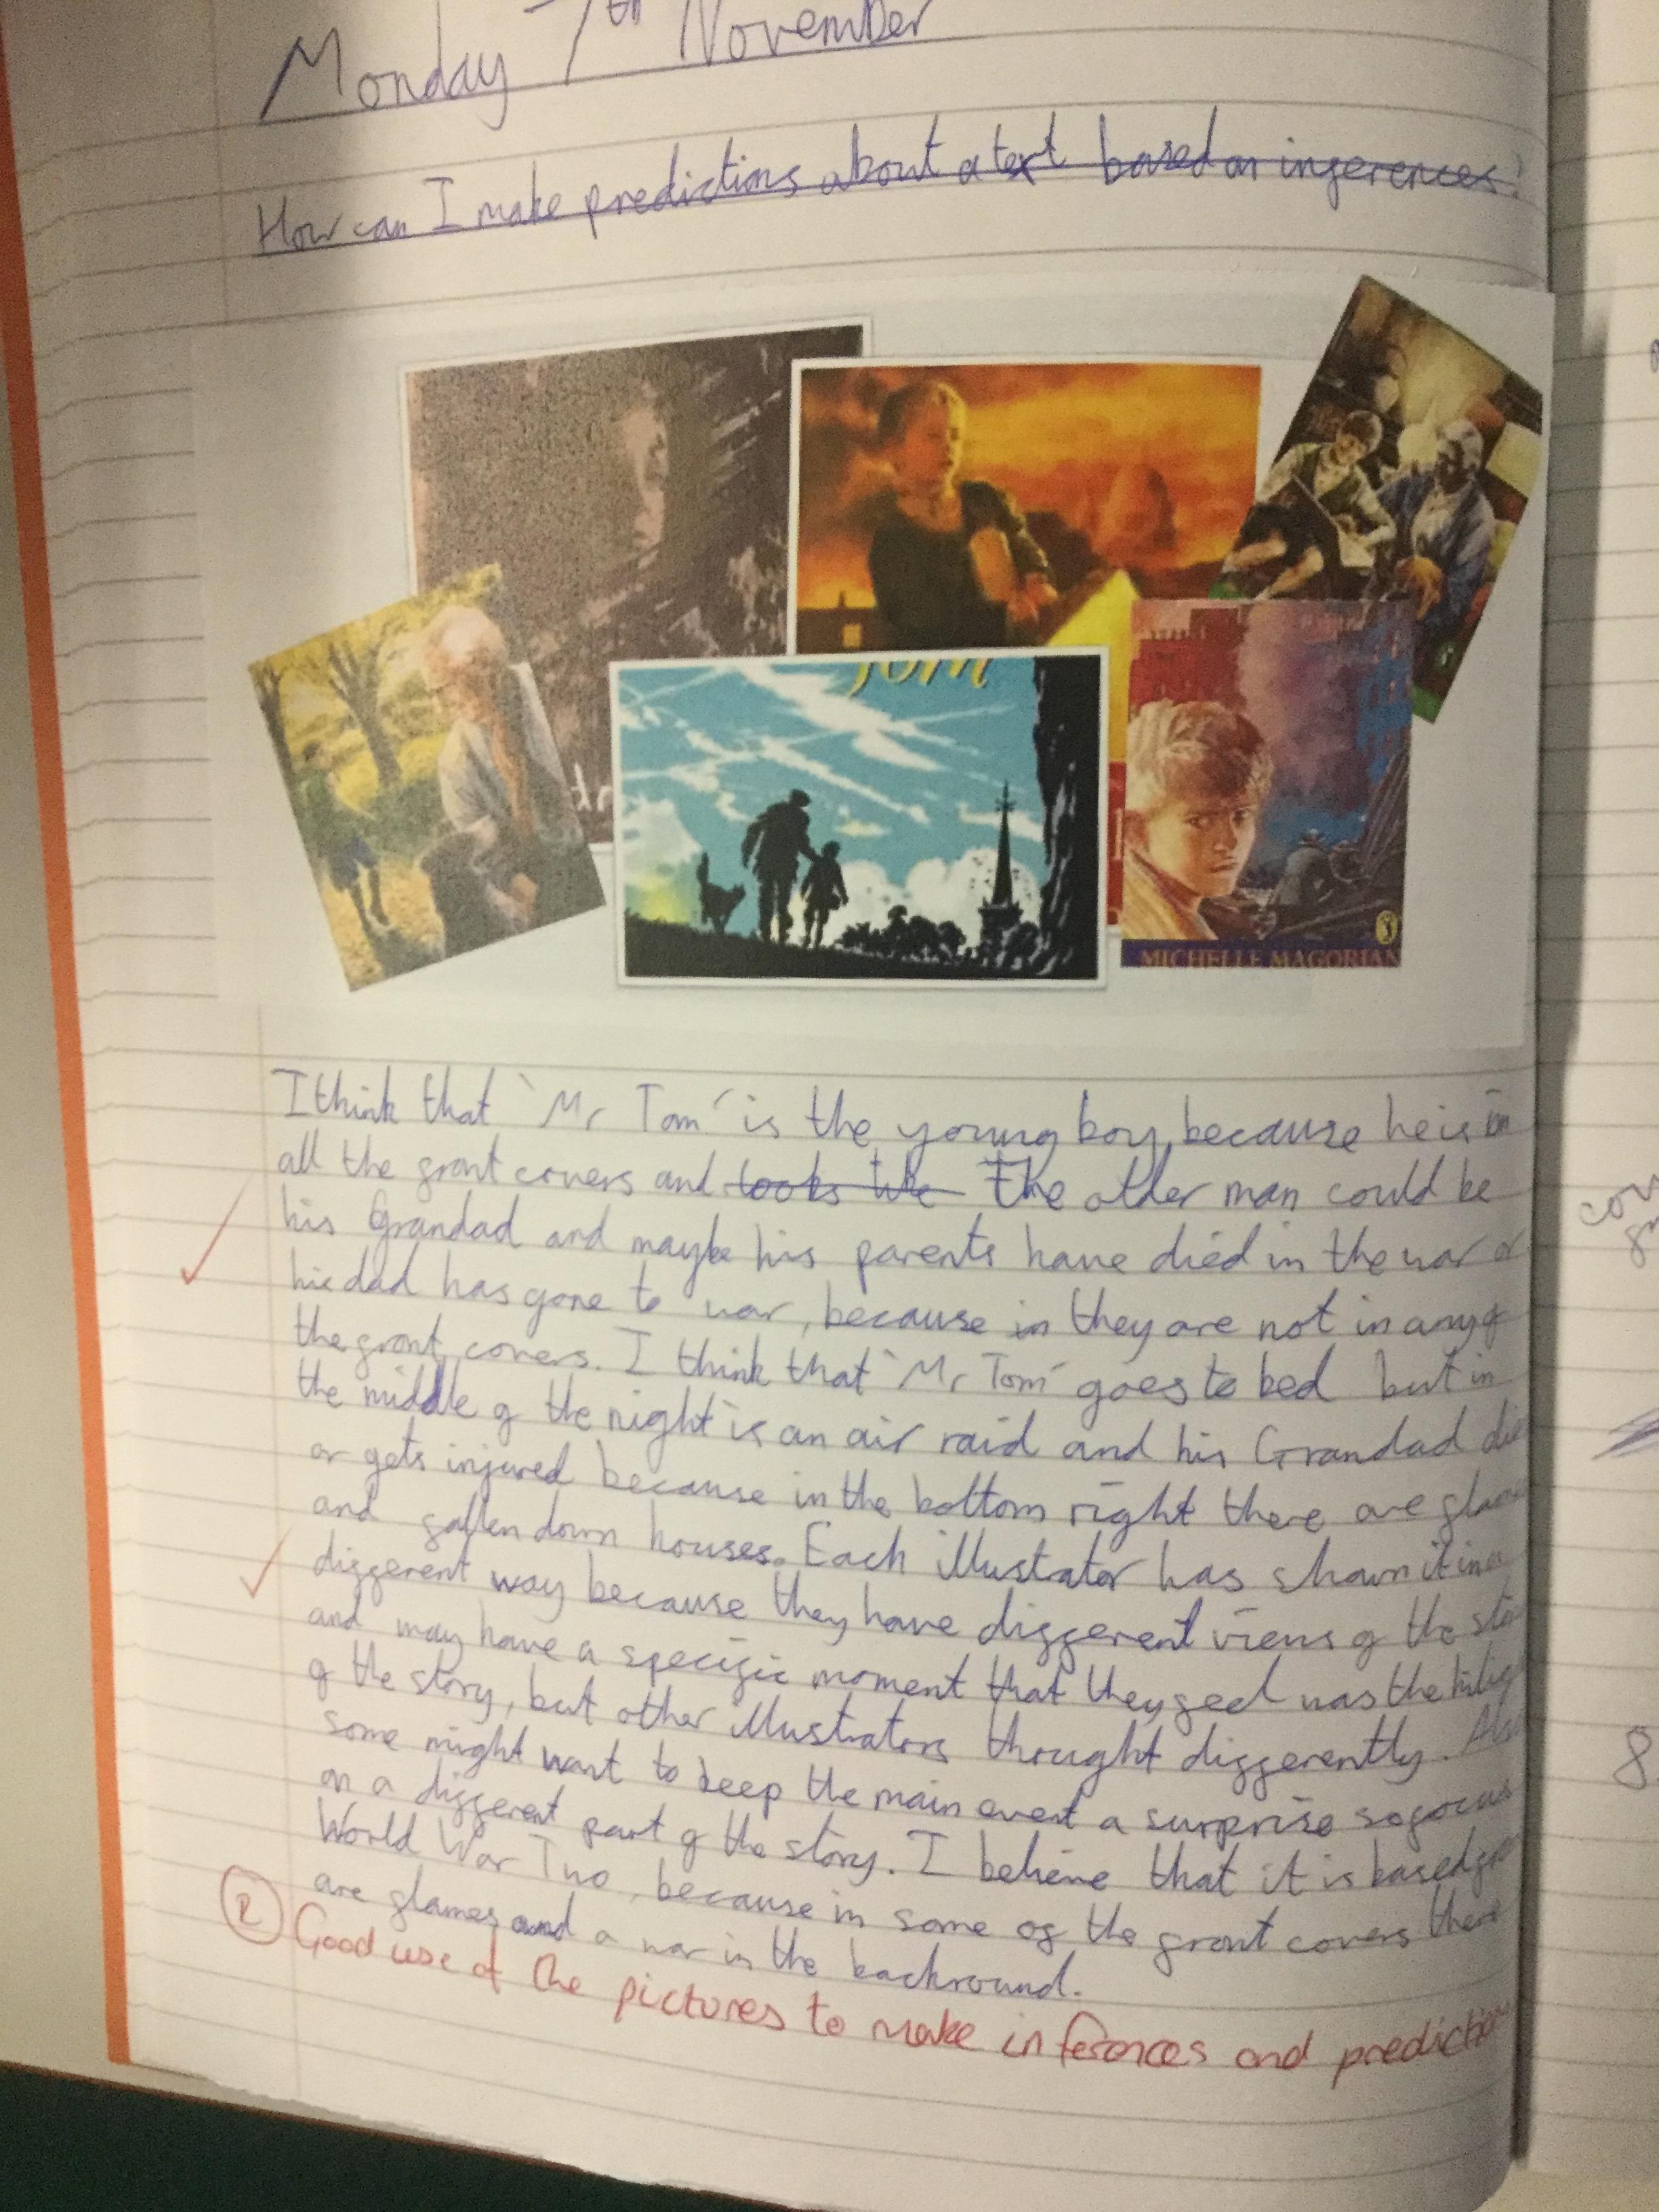 Monday 7th November
How can I make predictions about a text based on inferences?
Tom
MICHELLE MAGORIAN
I think that 'Mr Tom' is the young boy, because he is in
all the front covers and looks like The older man could be
his Grandad and maybe his parents have died in the war or
his dad has gone to war, because in they are not in any of
the front covers. I think that 'Mr Tom' goes to bed but in
the middle of the night is an air raid and his Grandad
or gets injured because in the bottom right there are
and fallen down houses. Each illustrator has shown it in a
different way because they have different views of the
and may have a specific moment that they feel was the
of the story, but other illustrators thought differently. Also
some might want to keep the main event a surprise so focus
on a different part of the story. I believe that it is based
World War Two, because in some of the front covers there
are flames and a war in the backround.
R Good use of the pictures to make inferences and
8